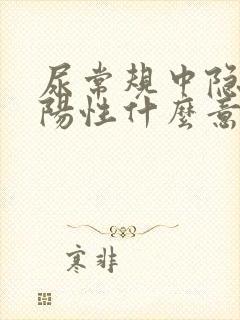 尿常规中隐
陽性什麼意
寒非